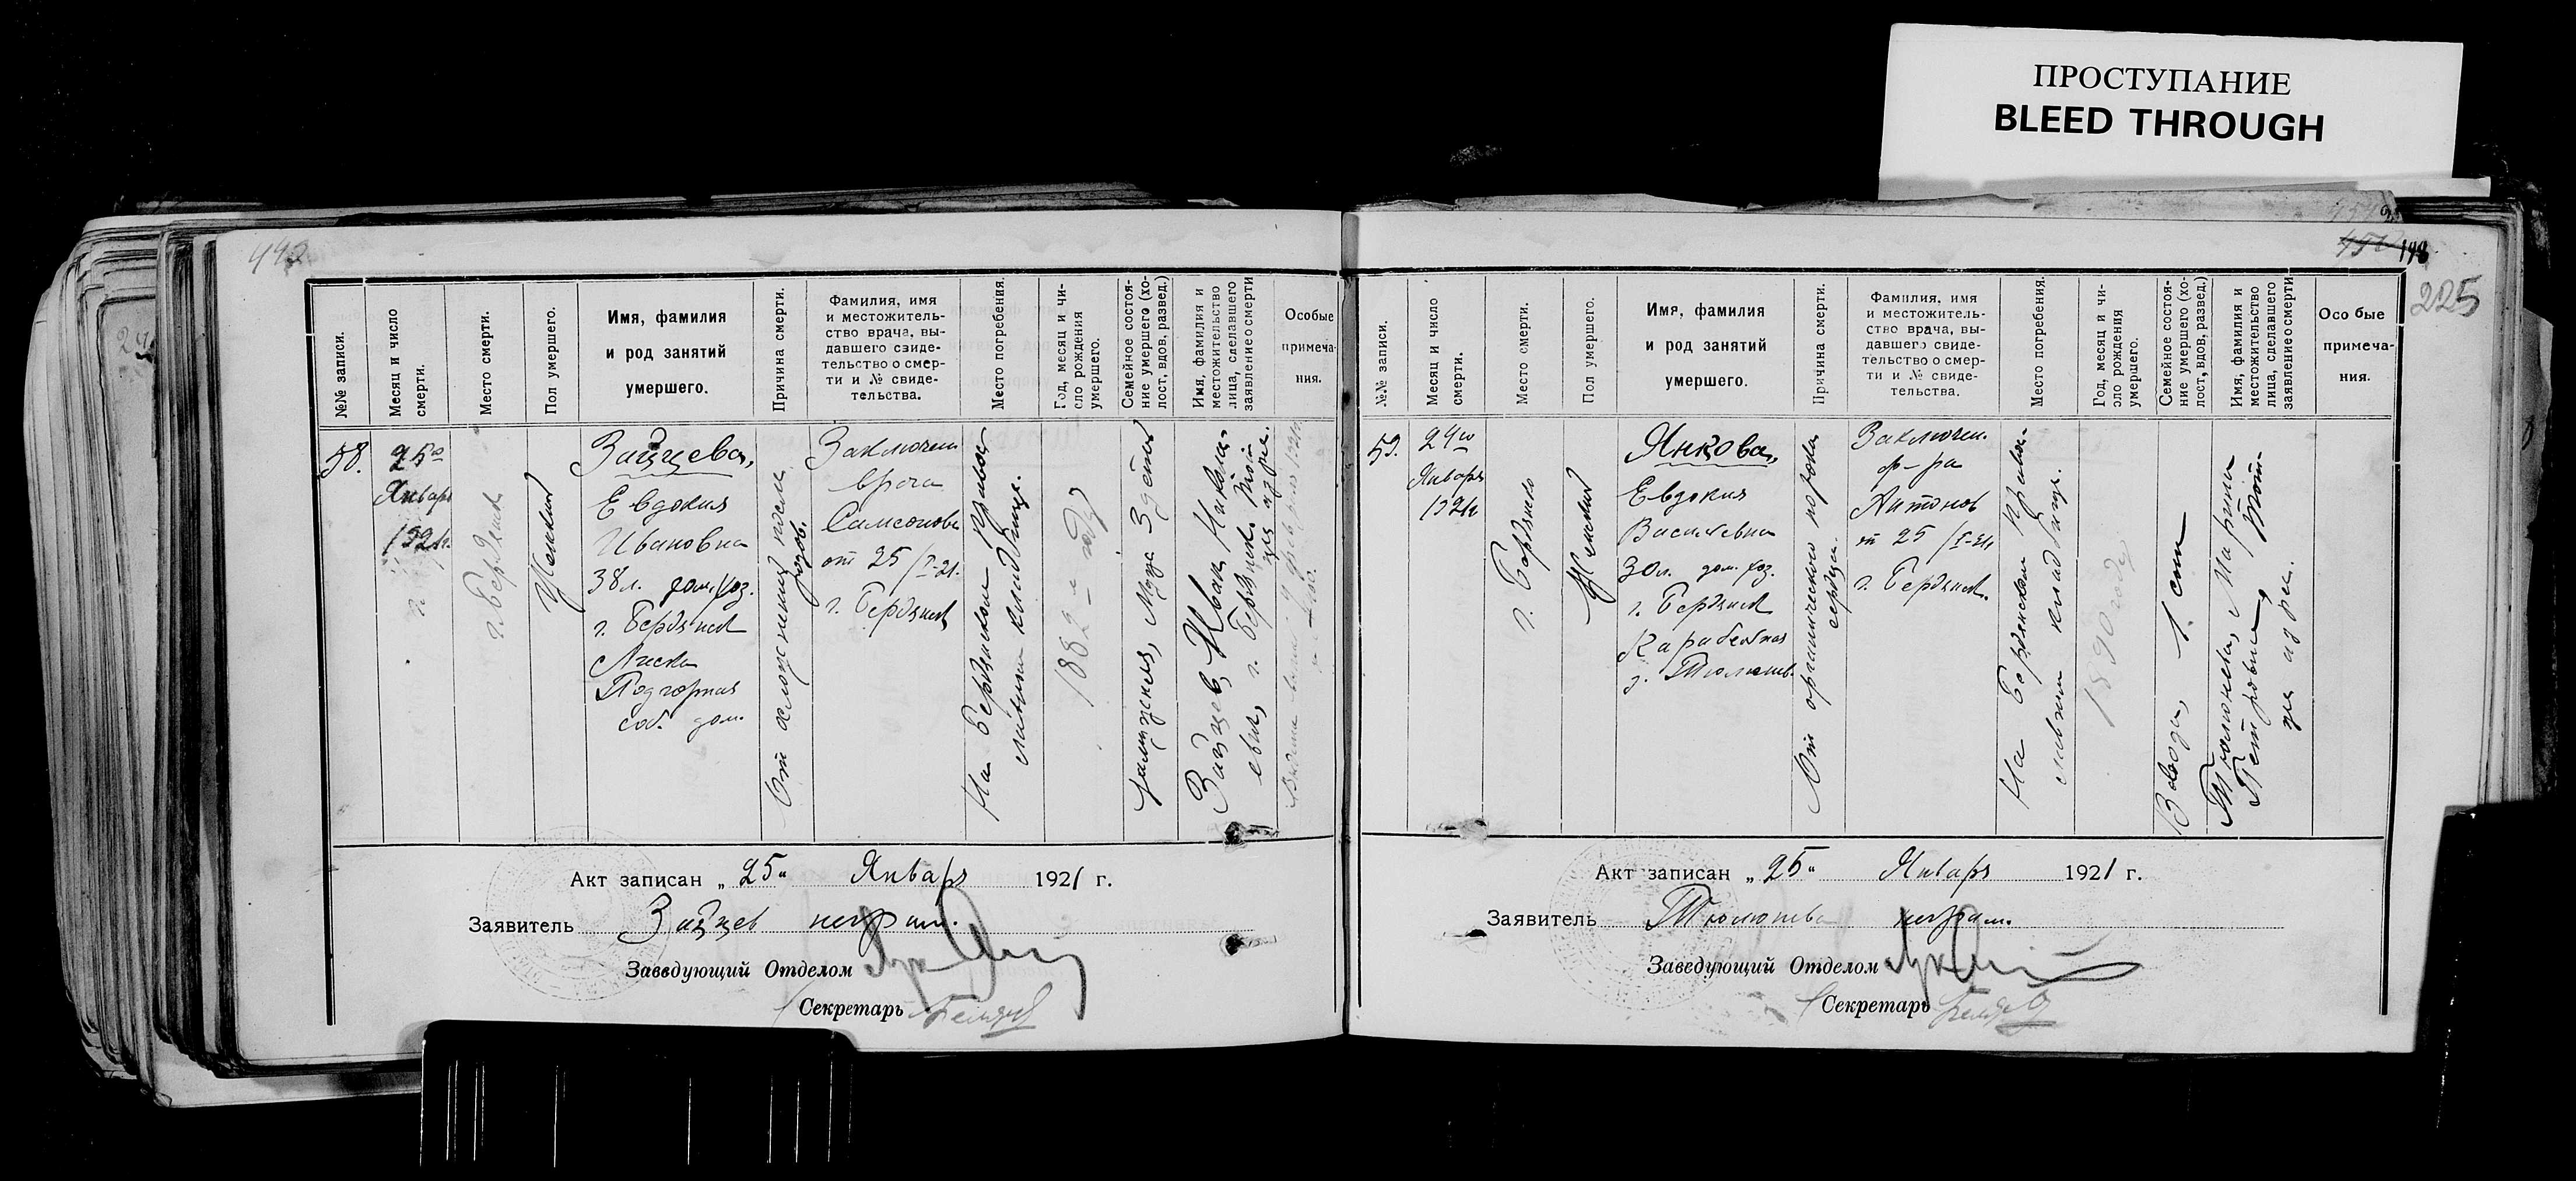 ПРОСТУПАНИЕ
BLEED THROUGH
№№ записи.
Месяц и число
смерти.
Место смерти.
Пол умершего.
Имя, фамилия
и род занятий
умершего.
Причина смерти.
Фамилия, имя
и местожитель-
ство врача, вы-
давшего свиде-
тельство о смер-
ти и № свиде-
тельства.
Место погребения.
Год, месяц и чи-
сло рождения
умершего.
Семейное состоя-
ние умершего (хо-
лост, вдов, развед.)
Имя, фамилия и
местожительство
лица, сделавшего
заявление о смерти
Особые
примеча-
ния.
58.
25го
Январь
1921г.
г. Бердянск
Женский
Зайцева,
Евдокия
Ивановна
38л. дом. хоз.
г. Бердянск
Лиски
Подгорная
соб. дом.
От осложнений после
родов.
Заключен
врача
Самсонова
от 25/I-21.
г. Бердянск
На Бердянском правос-
лавном кладбище.
1882 - году
замужняя, Мужа 3 детей
Зайцев, Иван Никола-
евич, г. Бердянск, той
же адрес.
Акт записан „25“ Январь 1921 г.
Заявитель Зайцев неграм.
Заведующий Отделом
Секретарь
198
225
№№ записи.
Месяц и число
смерти.
Место смерти.
Пол умершего.
Имя, фамилия
и род занятий
умершего.
Причина смерти.
Фамилия, имя
и местожитель-
ство врача, вы-
давшего свиде-
тельство о смер-
ти и № свиде-
тельства.
Место погребения.
Год, месяц и чи-
сло рождения
умершего.
Семейное состоя-
ние умершего (хо-
лост, вдов, развед.)
Имя, фамилия и
местожительство
лица, сделавшего
заявление о смерти
Особые
примеча-
ния.
59.
24го
Январь
1921г
г. Бердянск
Женский
Янкова,
Евдокия
Васильевна
30л. дом. хоз.
г. Бердянск
Карабельная
д.
От органического порока
сердца.
Заключен.
д-ра
Антонов
от 25/I-21,
г. Бердянск.
На Бердянском правос-
лавном кладбище.
1890 году
Вдова, 1. сын
Марина
Петровна,
же адрес.
Акт записан „25“ Январь 1921 г.
Заявитель неграм.
Заведующий Отделом
Секретарь